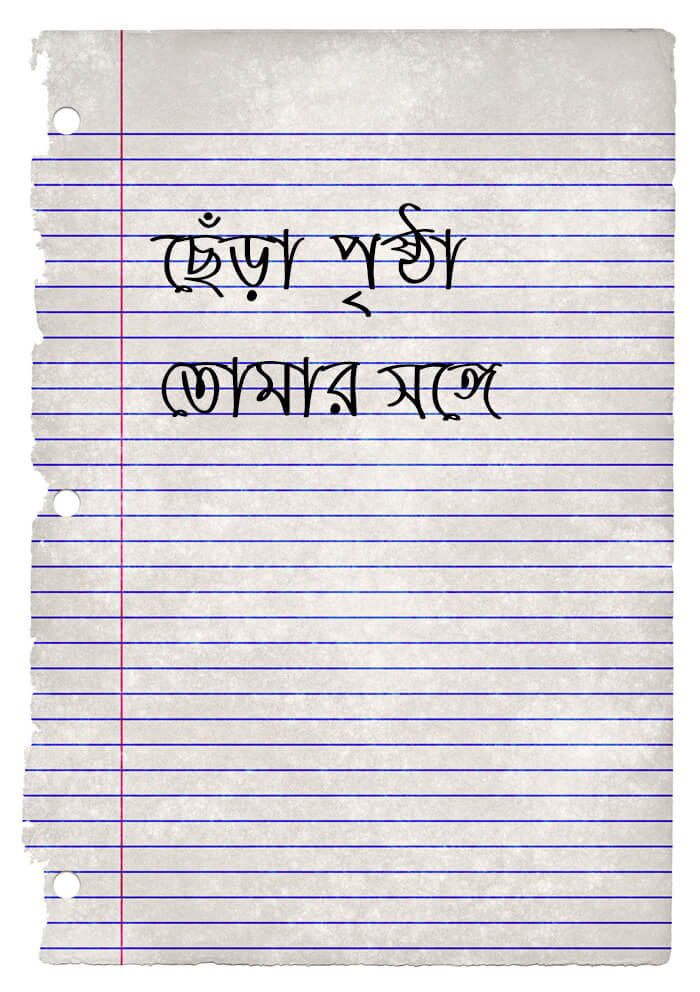 ছেঁড়া পৃষ্ঠা
তোমার সঙ্গে